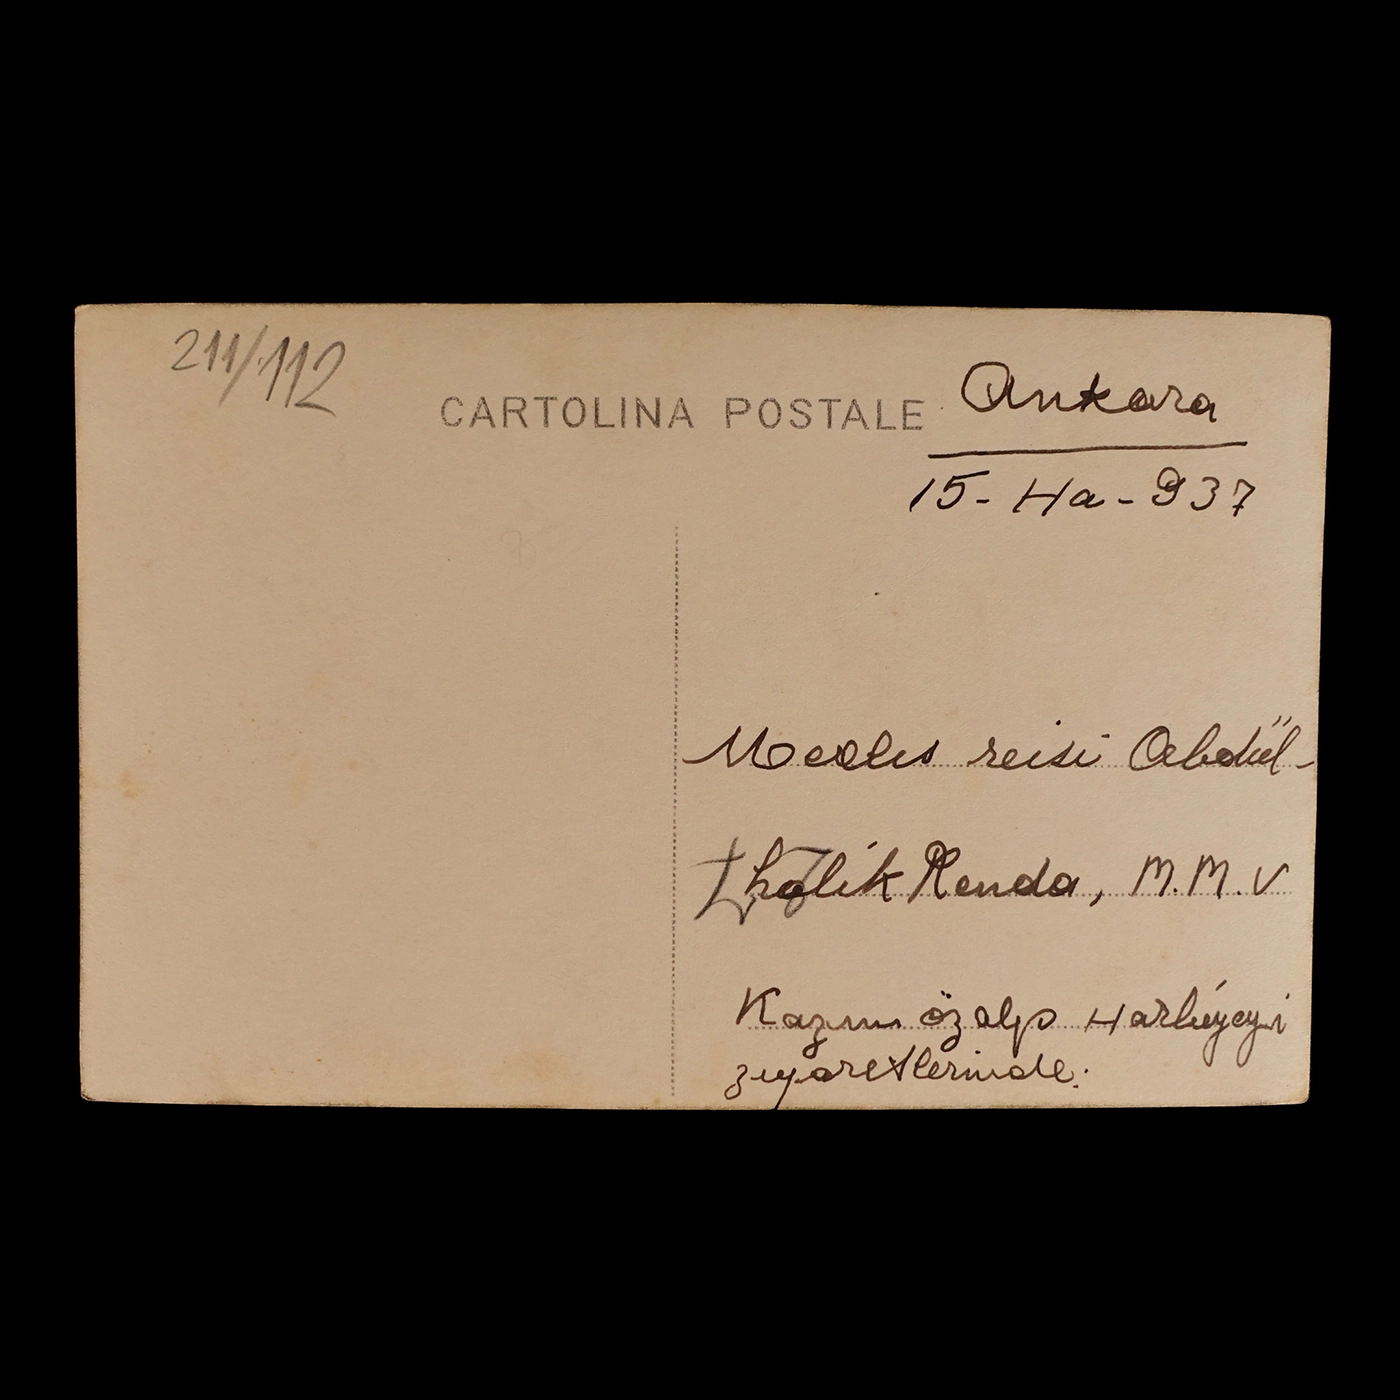 211/112
CARTOLINA POSTALE
Ankara
15-Ha-937
Meclis reisi Abdül-
halik Renda, M.M.V
Kazım özalp Harbiyeyi
ziyaretlerinde.